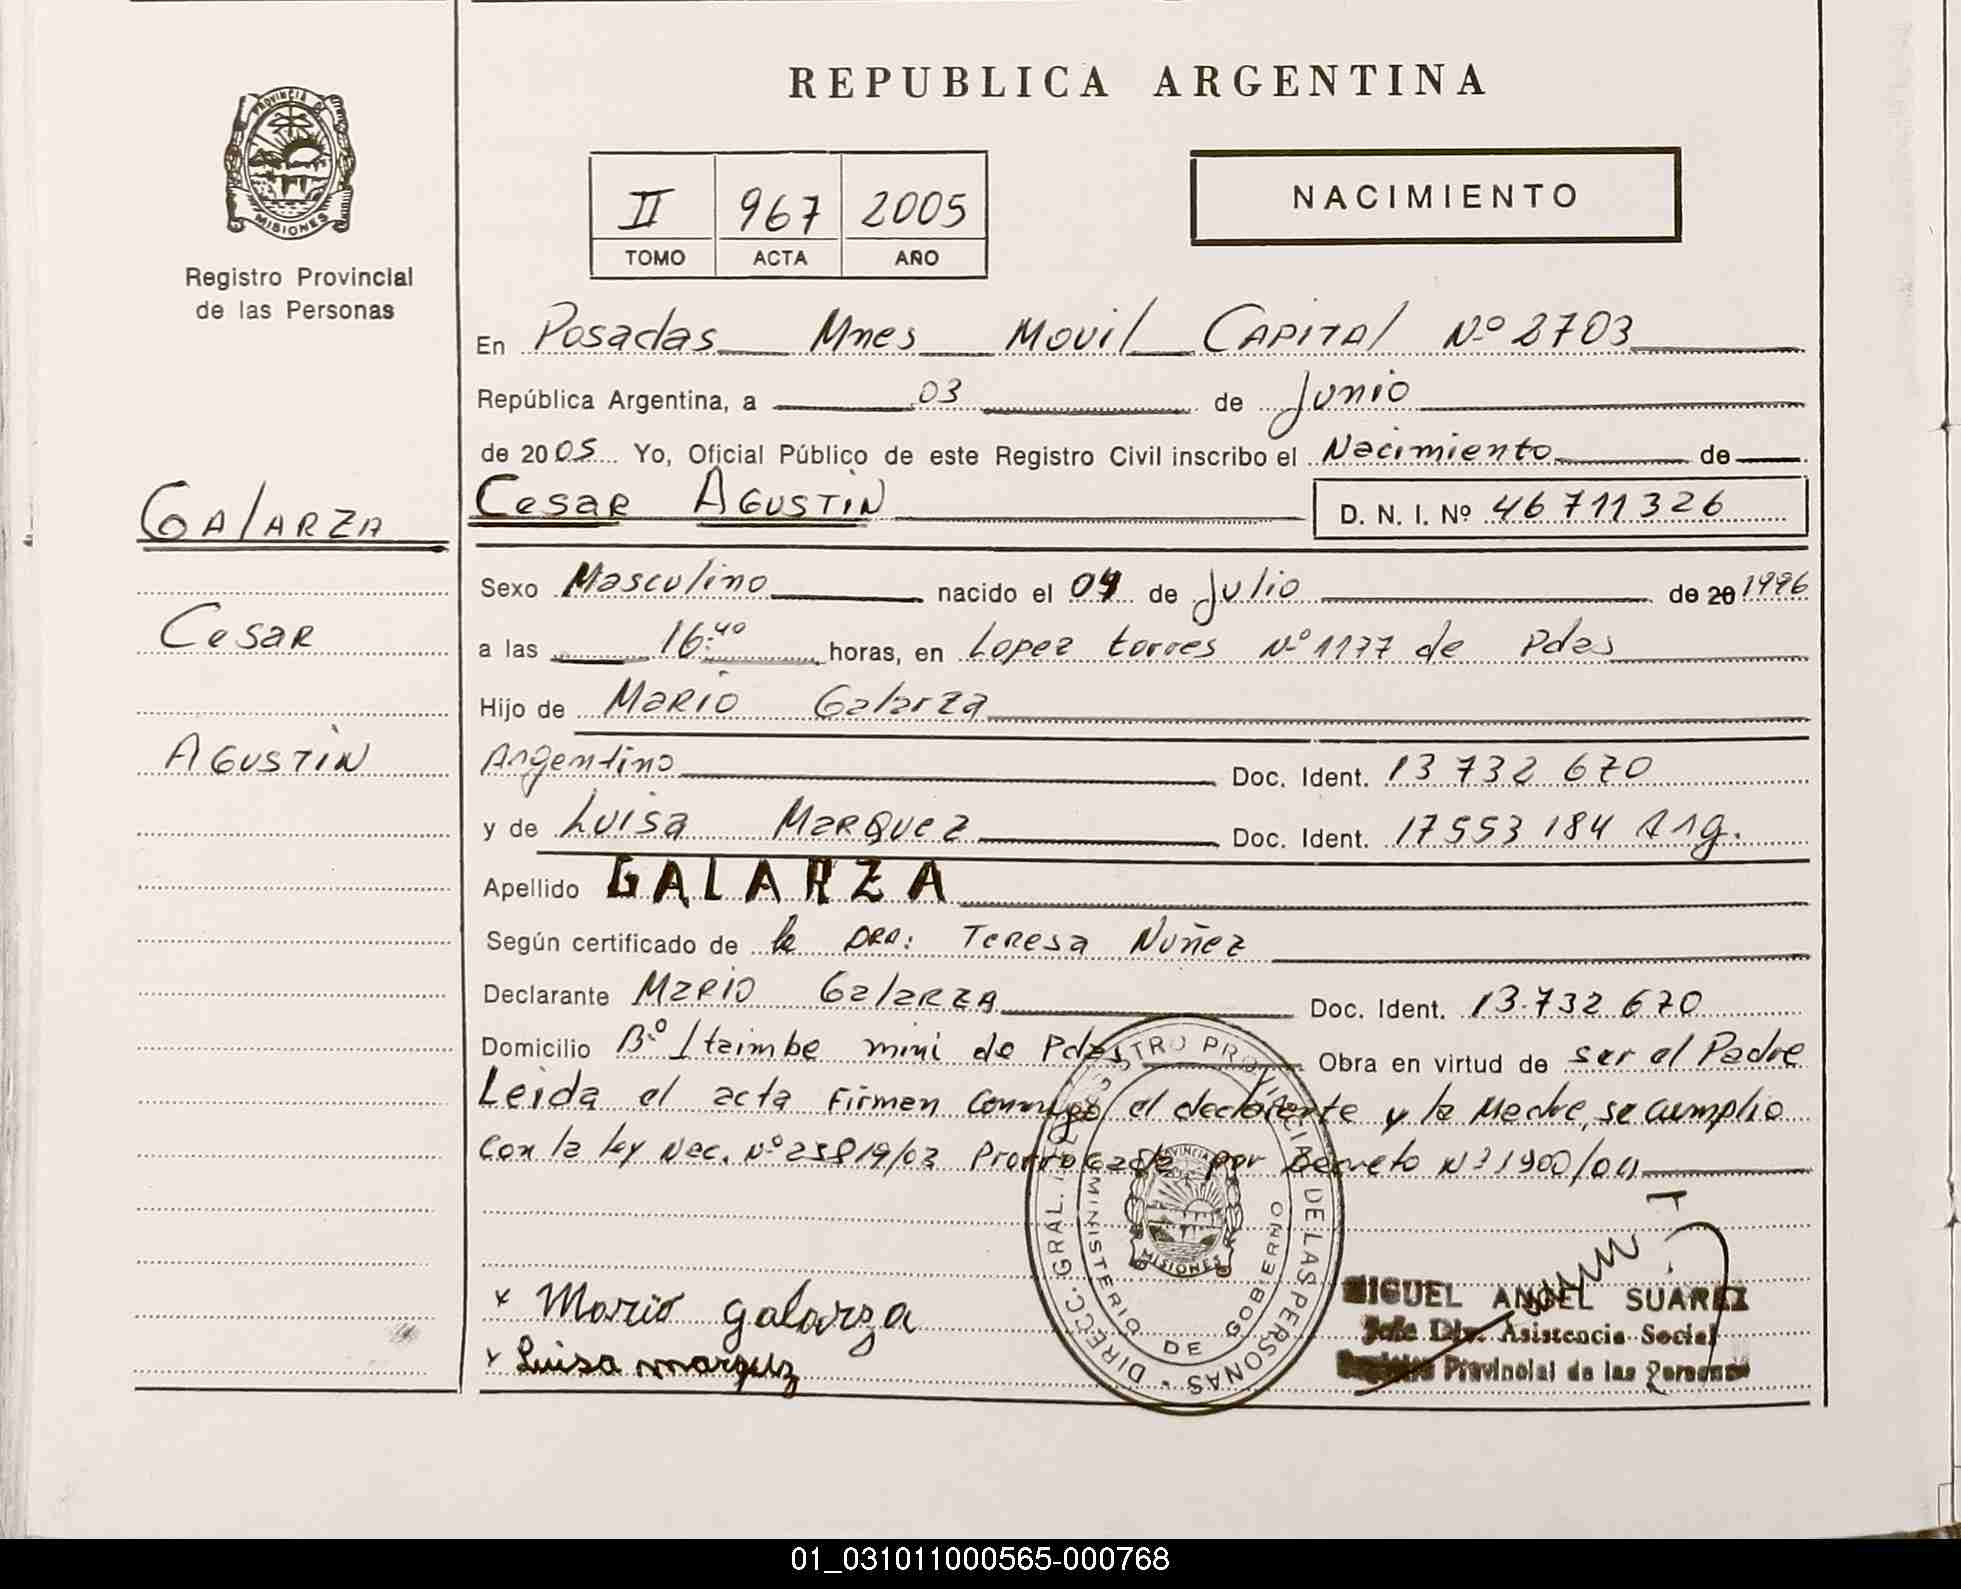 REPUBLICA ARGENTINA
PROVINCIA DE
MISIONES
Registro Provincial
de las Personas
II 967 2005
TOMO ACTA AÑO
NACIMIENTO
En Posadas Mnes Movil CAPITAl Nº 2703
República Argentina, a 03 de Junio
de 2005 Yo, Oficial Público de este Registro Civil inscribo el Nacimiento de
GAlARZA
Cesar AGUSTIN D. N. I. Nº 46 711 326
Sexo Masculino nacido el 04 de Julio de 20 1996
Cesar
a las 16:40 horas, en Lopez torres Nº 1177 de Pdas
Hijo de Mario Galarza
AGUSTIN
Argentino Doc. Ident. 13 732 670
y de Luisa Marquez Doc. Ident. 17 553 184 Arg.
Apellido GALARZA
Según certificado de la DRA: Teresa Nuñez
Declarante Mario Galarza Doc. Ident. 13.732 670
Domicilio Bº Itaimbe mini de Pdas Obra en virtud de ser el Padre
Leida el acta Firman Conmigo el declarante y la Madre, se cumplio
Con la ley Nac. Nº 25819/03 Prorrogada por Decreto Nº 1900/04
DIRECC. GRAL. REGISTRO PROVINCIAL DE LAS PERSONAS
MINISTERIO DE GOBIERNO
PROVINCIA
MISIONES
x Mario galarza
x Luisa marquez
MIGUEL ANGEL SUAREZ
Jefe Div. Asistencia Social
Registro Provincial de las Personas
01_031011000565-000768